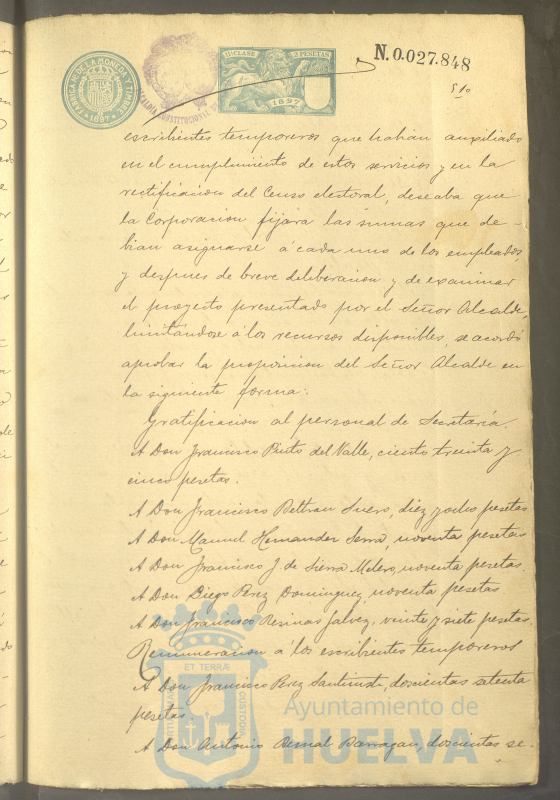 FABRICA NAL DE LA MONEDA Y TIMBRE
1897
11ª CLASE 2 PESETAS
1897
N.0.027.848
escribientes temporeros que habian auxiliado
en el cumplimiento de estos servicios y en la
rectificacion del Censo electoral, deseaba que
la Corporacion fijara las sumas que de-
bian asignarse á cada uno de los empleados
y despues de breve deliberacion y de examinar
el proyecto presentado por el Señor Alcalde,
limitándose á los recursos disponibles, se acordó
aprobar la proposicion del Señor Alcalde en
la siguiente forma:
Gratificacion al personal de Secretaría.
A Don Francisco Pinto del Valle, ciento treinta y
cinco pesetas.
A Don Francisco Beltran Suero, diez y ocho pesetas
A Don Manuel Hernandez Serra, noventa pesetas
A Don Francisco J. de Sierra Melero, noventa pesetas.
A Don Diego Perez Dominguez, noventa pesetas
A Don Francisco Galvez, veinte y siete pesetas.
Remuneracion á los escribientes temporeros
A Don Francisco Perez doscientas setenta
pesetas.
A Don Antonio Bernal Barragan, doscientas se-
ET TERRÆ
PORTUS MARIS
CUSTODIA
Ayuntamiento de
HUELVA